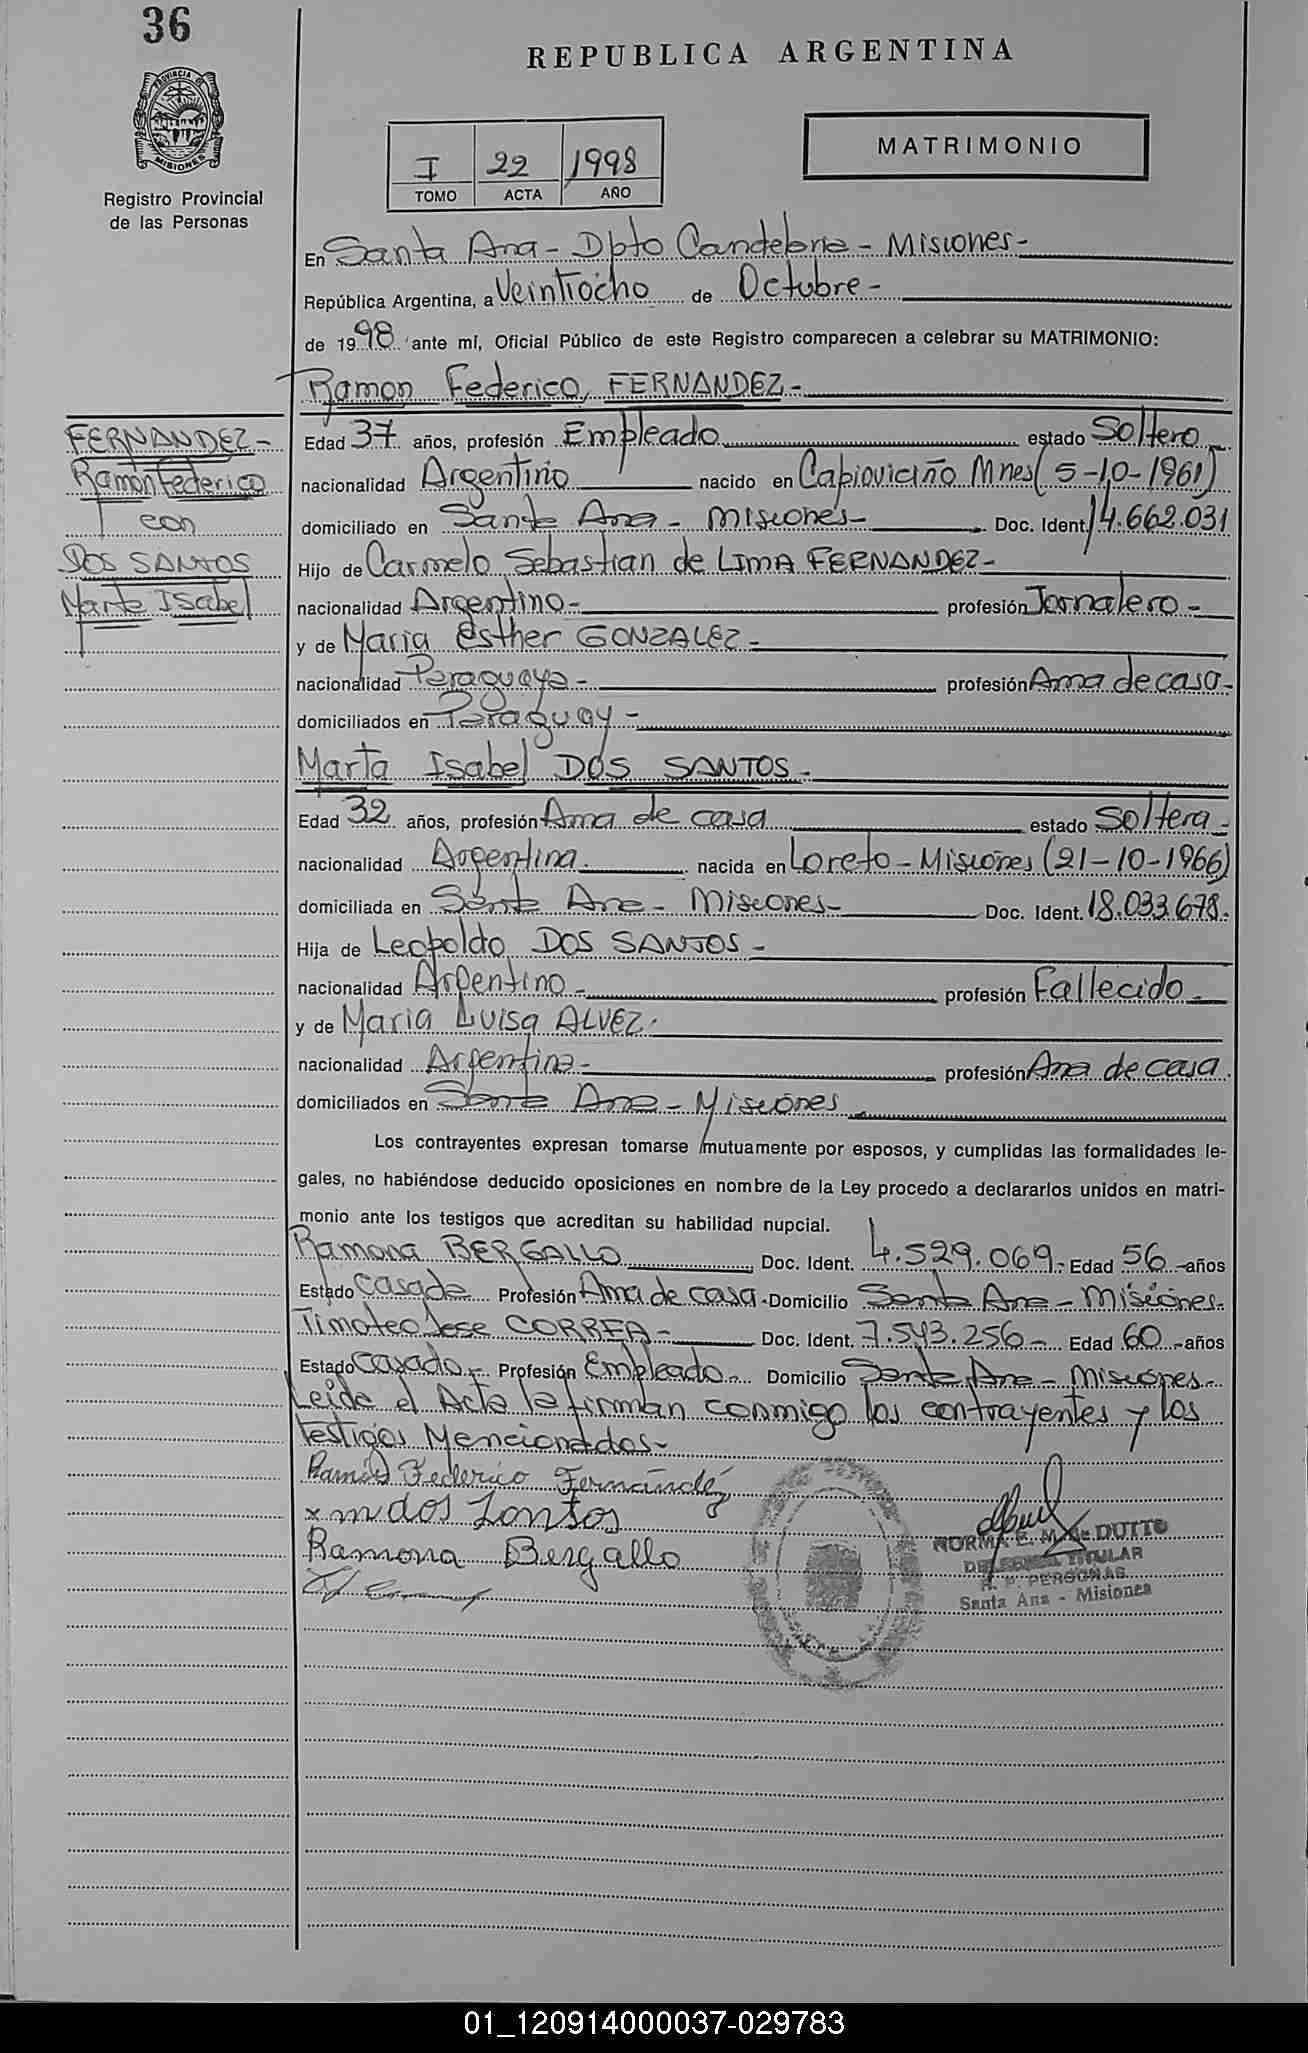 36
PROVINCIA DE MISIONES
Registro Provincial
de las Personas
REPUBLICA ARGENTINA
I 22 1998
TOMO ACTA AÑO
MATRIMONIO
En Santa Ana - Dpto Candelaria - Misiones -
República Argentina, a Veintiocho de Octubre -
de 1998 ante mí, Oficial Público de este Registro comparecen a celebrar su MATRIMONIO:
Ramon Federico, FERNANDEZ -
FERNANDEZ -
Ramon Federico
con
DOS SANTOS
Marta Isabel
Edad 37 años, profesión Empleado estado Soltero
nacionalidad Argentino nacido en Capioviciño Mnes (5-10-1961)
domiciliado en Santa Ana - Misiones - Doc. Ident. 14.662.031
Hijo de Carmelo Sebastian de LIMA FERNANDEZ -
nacionalidad Argentino - profesión Jornalero -
y de Maria Esther GONZALEZ -
nacionalidad Paraguaya - profesión Ama de casa -
domiciliados en Paraguay -
Marta Isabel DOS SANTOS -
Edad 32 años, profesión Ama de casa estado Soltera -
nacionalidad Argentina. nacida en Loreto - Misiones (21-10-1966)
domiciliada en Santa Ana - Misiones - Doc. Ident. 18.033.678.
Hija de Leopoldo DOS SANTOS -
nacionalidad Argentino - profesión Fallecido -
y de Maria Luisa ALVEZ.
nacionalidad Argentina - profesión Ama de casa.
domiciliados en Santa Ana - Misiones
Los contrayentes expresan tomarse mutuamente por esposos, y cumplidas las formalidades le-
gales, no habiéndose deducido oposiciones en nombre de la Ley procedo a declararlos unidos en matri-
monio ante los testigos que acreditan su habilidad nupcial.
Ramona BERGALLO Doc. Ident. 4.529.069. Edad 56 -años
Estado Casada Profesión Ama de casa. Domicilio Santa Ana - Misiones.
Timoteo Jose CORREA - Doc. Ident. 7.543.256 - Edad 60 -años
Estado Casado - Profesión Empleado. Domicilio Santa Ana - Misiones -
Leida el Acta la firman conmigo los contrayentes y los
testigos Mencionados -
Ramón Federico Fernández
x m dos Santos
Ramona Bergallo
NORMA E. M. de DUTTO
DELEGADA TITULAR
R. P. PERSONAS
Santa Ana - Misiones
01_120914000037-029783